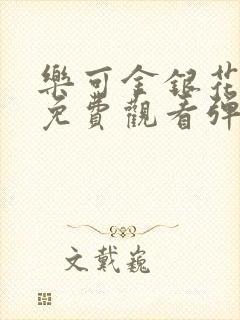 樂可金銀花
免費觀看彈
文戴巍